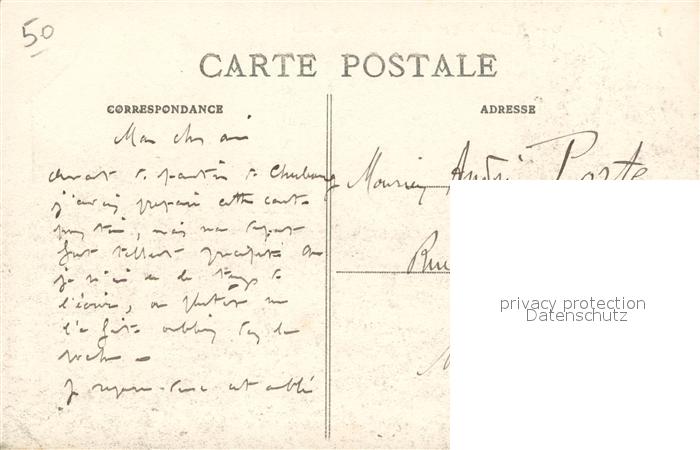 50
CARTE POSTALE
CORRESPONDANCE
ADRESSE
Mon cher ami
avant de partir de Cherbourg
j'avais préparé cette carte
pour toi, mais mon départ
fut tellement précipité
je n'ai eu le temps de
l'écrire, ou plutôt
l'a fait oublier
Je répare cet oubli
Monsieur André Porte
Rue
privacy protection
Datenschutz